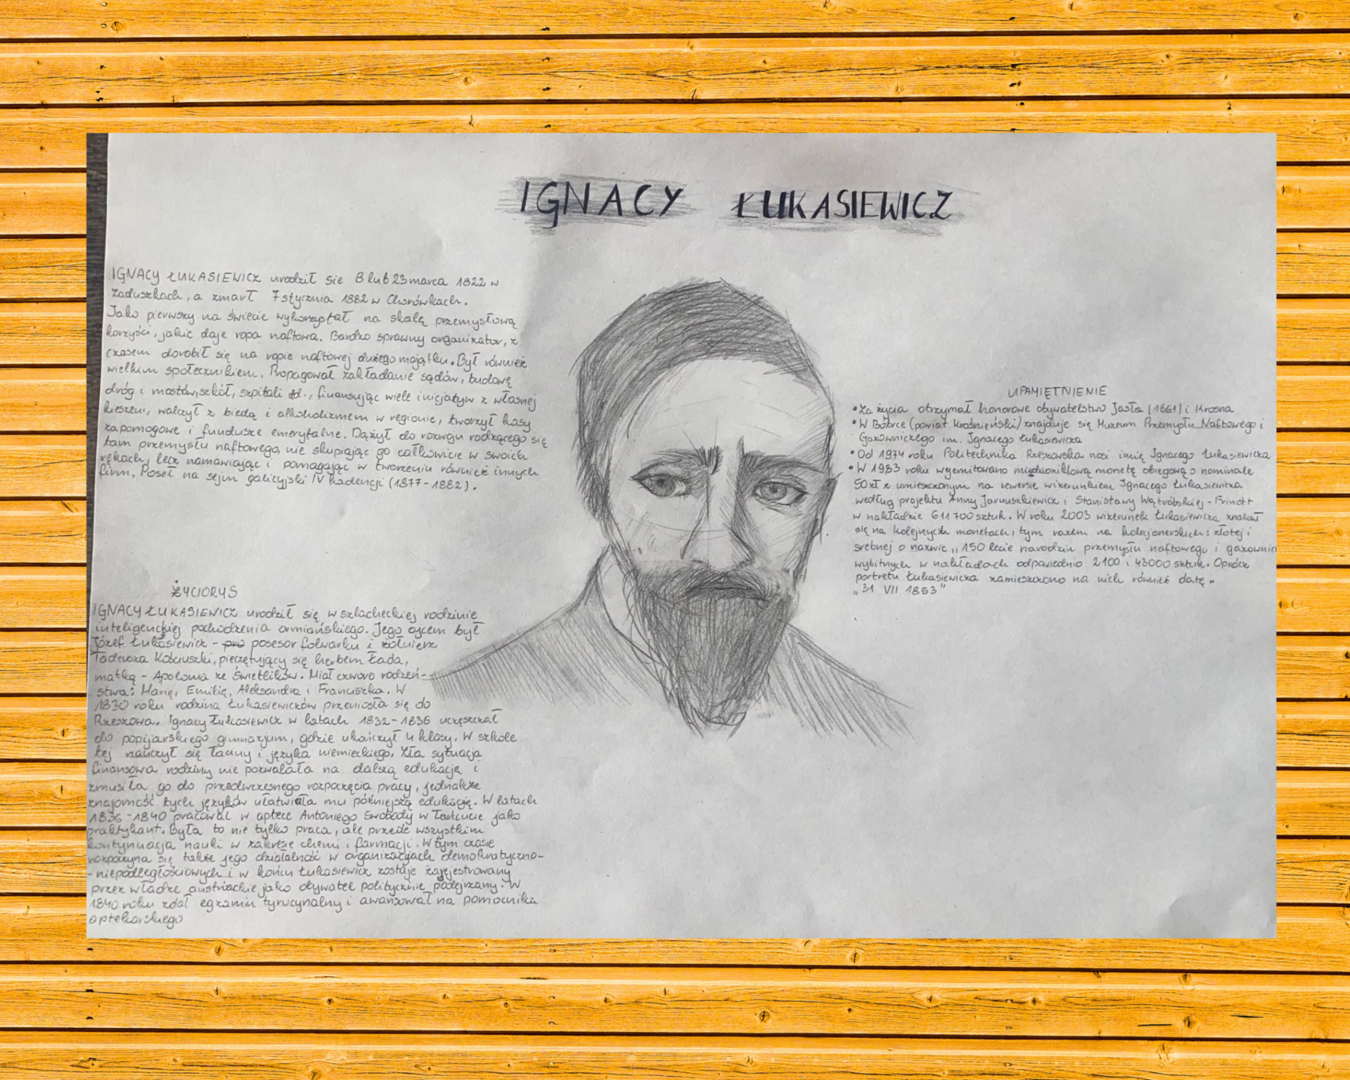 IGNACY ŁUKASIEWICZ
IGNACY ŁUKASIEWICZ urodził się 8 lub 23 marca 1822 w
Zaduszkach, a zmarł 7 stycznia 1882 w Chorówkach.
Jako pierwszy na świecie wykorzystał na skalę przemysłową
korzyści, jakie daje ropa naftowa. Bardzo sprawny organizator, z
czasem dorobił się na ropie naftowej dużego majątku. Był również
wielkim społecznikiem. Propagował zakładanie sądów, budowę
dróg i mostów, szkół, szpitali itd., finansując wiele inicjatyw z własnej
kieszeni, walczył z biedą i alkoholizmem w regionie, tworzył kasy
zapomogowe i fundusze emerytalne. Dążył do rozwoju rodzącego się
tam przemysłu naftowego, nie skupiając go całkowicie w swoich
rękach, lecz namawiając i pomagając w tworzeniu również innych
firm. Poseł na sejm galicyjski IV kadencji (1877-1882).
ŻYCIORYS
IGNACY ŁUKASIEWICZ urodził się w szlacheckiej rodzinie
inteligenckiej pochodzenia ormiańskiego. Jego ojcem był
Józef Łukasiewicz - posesor folwarku i żołnierz
Tadeusza Kościuszki, pieczętujący się herbem Łada,
matką - Apolonia ze Świetlików. Miał czworo rodzeń-
stwa: Marię, Emilię, Aleksandra i Franciszka. W
1830 roku rodzina Łukasiewiczów przeniosła się do
Rzeszowa. Ignacy Łukasiewicz w latach 1832-1836 uczęszczał
do popijarskiego gimnazjum, gdzie ukończył 4 klasy. W szkole
tej nauczył się łaciny i języka niemieckiego. Zła sytuacja
finansowa rodziny nie pozwalała na dalszą edukację i
zmusiła go do przedwczesnego rozpoczęcia pracy, jednakże
znajomość tych języków ułatwiała mu późniejszą edukację. W latach
1836-1840 pracował w aptece Antoniego Swobody w Łańcucie jako
praktykant. Była to nie tylko praca, ale przede wszystkim
kontynuacja nauki w zakresie chemii i farmacji. W tym czasie
rozpoczyna się także jego działalność w organizacjach demokratyczno-
-niepodległościowych i w końcu Łukasiewicz zostaje zarejestrowany
przez władze austriackie jako obywatel politycznie podejrzany. W
1840 roku zdał egzamin tyrocynalny i awansował na pomocnika
aptekarskiego
UPAMIĘTNIENIE
• Za życia otrzymał honorowe obywatelstwo Jasła (1861) i Krosna
• W Bóbrce (powiat krośnieński) znajduje się Muzeum Przemysłu Naftowego i
Gazowniczego im. Ignacego Łukasiewicza
• Od 1974 roku Politechnika Rzeszowska nosi imię Ignacego Łukasiewicza
• W 1983 roku wyemitowano miedzioniklową monetę obiegową o nominale
50 zł z umieszczonym na rewersie wizerunkiem Ignacego Łukasiewicza
według projektu Anny Jarnuszkiewicz i Stanisławy Wątróbskiej-Frindt
w nakładzie 611 700 sztuk. W roku 2003 wizerunek Łukasiewicza znalazł
się na kolejnych monetach, tym razem na kolekcjonerskich: złotej i
srebrnej o nazwie „150 lecie narodzin przemysłu naftowego i gazown
wybitych w nakładach odpowiednio 2100 i 43000 sztuk. Oprócz
portretu Łukasiewicza zamieszczono na nich również datę
„31 VII 1853"